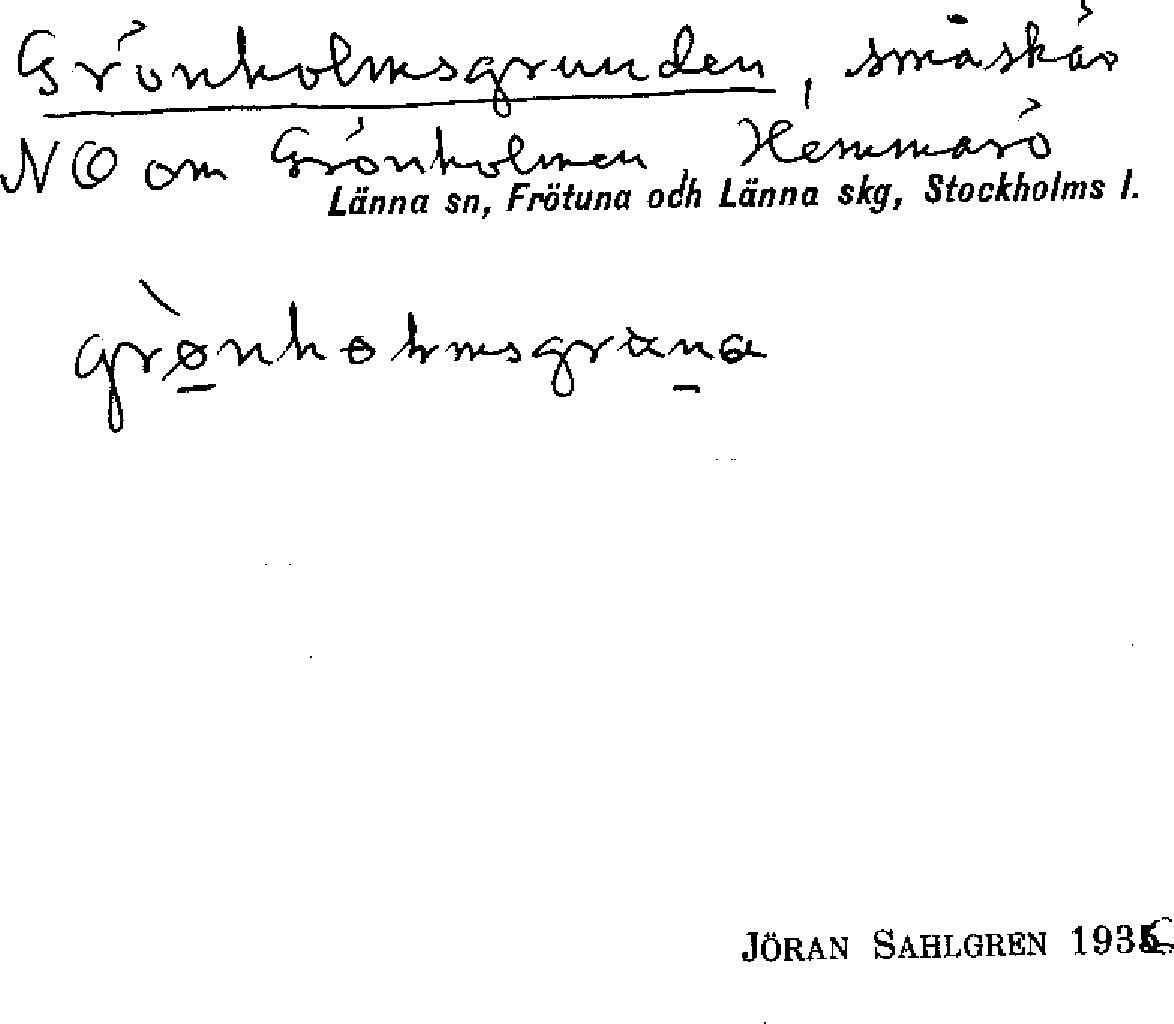 Grönholmsgrunden, småskär
NO om Grönholmen, Hemmarö
Länna sn, Frötuna och Länna skg, Stockholms l.
grø̀nholmsgruna
JÖRAN SAHLGREN 1936